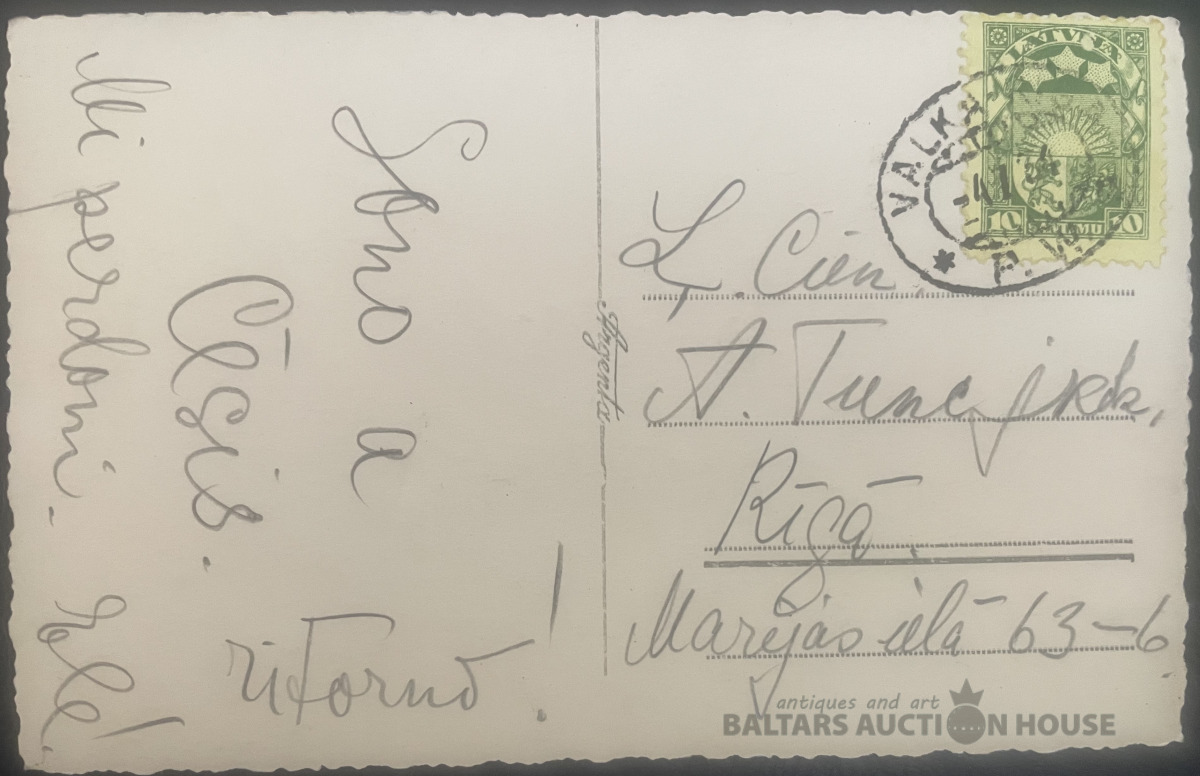 Sono a
Cēsis.
Mi perdoni.
ritorno!
Argenta
L. Cien.
A.
Rīgā.
Marijas ielā 63-6.
LATVIJA
10 SANTIMU 10
VALKA
antiques and art
BALTARS AUCTION HOUSE